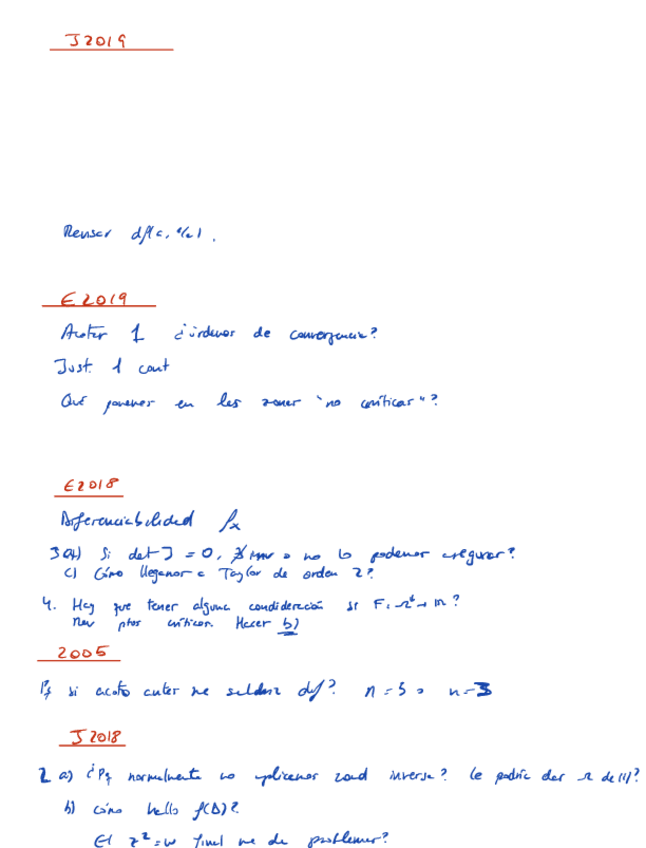 J2019
Revisar
E2019
Acotar 1 ¿órdenes de convergencia?
Just. 1 cont
Qué ponemos en les zonas "no críticas"?
E2018
Diferenciabilidad fx
3 a) Si det J = 0, o no lo podemos asegurar?
c) Cómo llegamos a Taylor de orden 2?
4. Hay que tener alguna consideración si F:
ptos críticos. Hacer b)
2005
Pq si acoto antes me saldría dif? n=5 o n=3
J2018
2 a) ¿Pq normalmente no aplicamos cond inversa? le podría dar
b) Cómo hallo f(D)?
El z²=w final me da problemas?